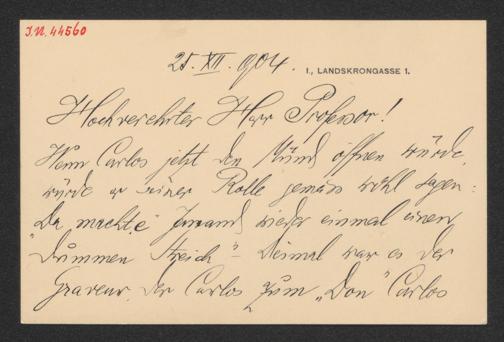 I.N. 44560
25. XII. 1904.
I., LANDSKRONGASSE 1.
Hochverehrter Herr Professor!
Wenn Carlos jetzt den Mund öffnen würde,
würde er seiner Rolle gemäss wohl sagen:
"Da machte" Jemand wieder einmal einen
"dummen Streich" - diesmal war es der
Graveur, der Carlos zum „Don" Carlos